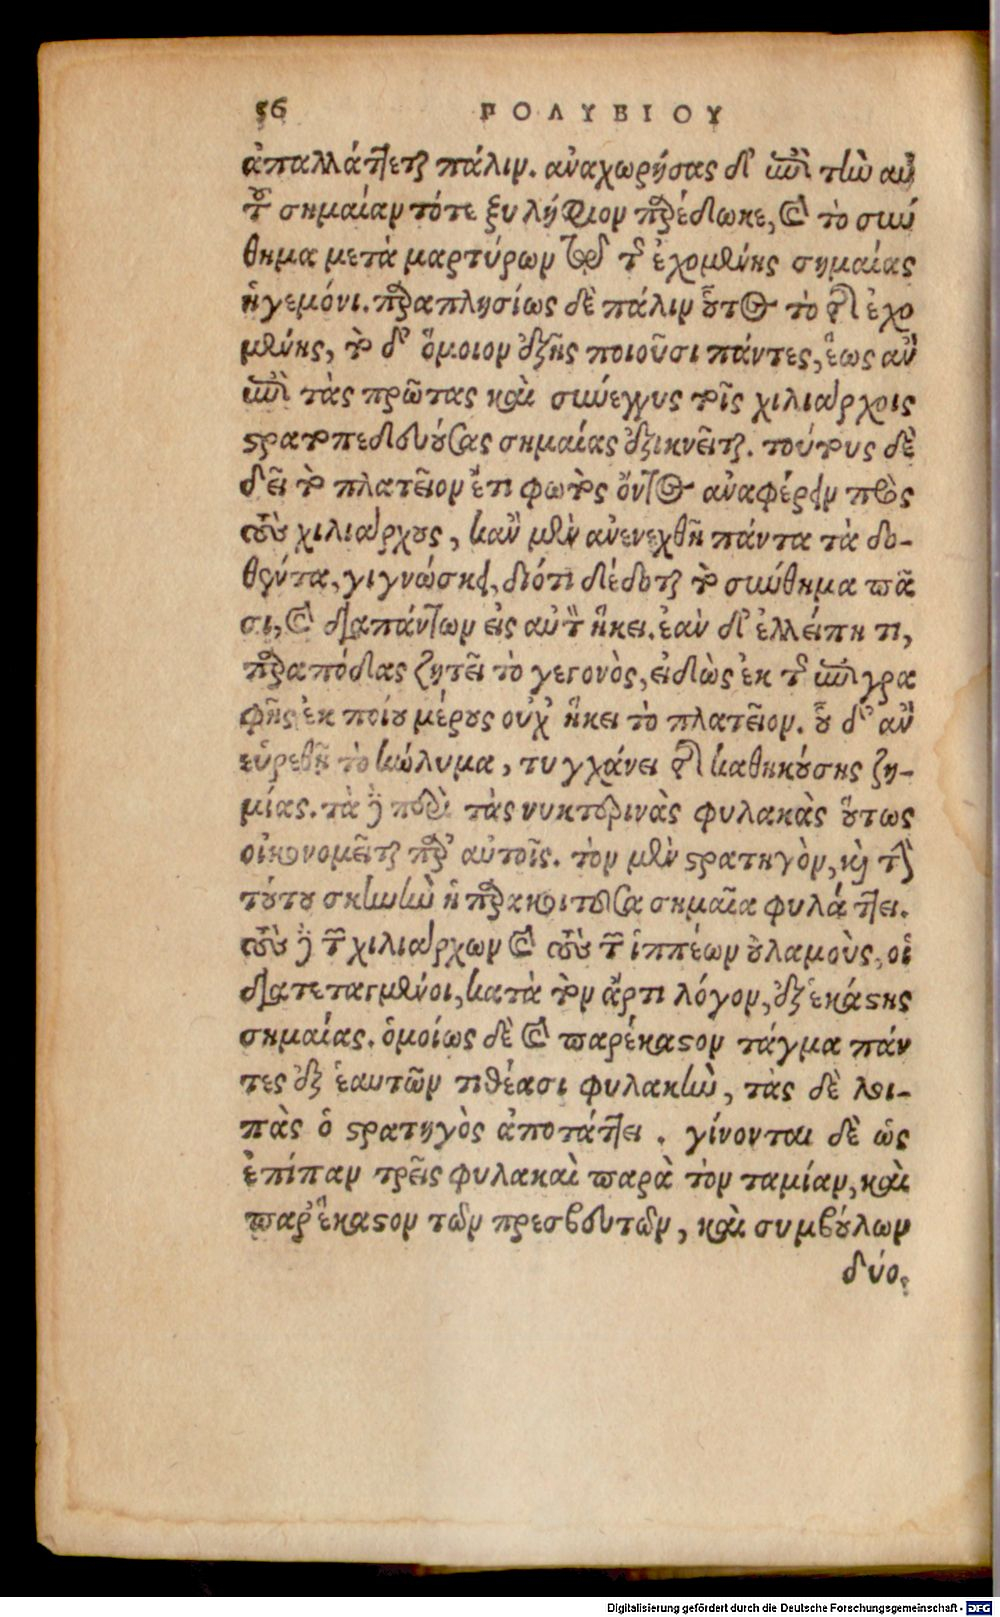 56 ΠΟΛΥΒΙΟΥ
ἀπαλλάττεται πάλιν. ἀναχωρήσας δ' ἐπὶ τὴν αὑ
τοῦ σημαίαν τότε ξυλήφιον παρέδωκε, καὶ τὸ συύ
θημα μετὰ μαρτύρων τῷ τῆς ἐχομένης σημαίας
ἡγεμόνι. παραπλησίως δὲ πάλιν οὗτος τῷ τῆς ἐχο
μένης, τὸ δ' ὅμοιον ἑξῆς ποιοῦσι πάντες, ἕως ἂν
ἐπὶ τὰς πρῶτας καὶ σύνεγγυς τοῖς χιλιάρχοις
στρατοπεδευούσας σημαίας ἐξικνεῖται. τούτους δὲ
δεῖ τὸ πλατεῖον ἔτι φωτὸς ὄντος ἀναφέρειν πρὸς
τοὺς χιλιάρχους, κἂν μὲν ἀνενεχθῇ πάντα τὰ δο-
θέντα, γιγνώσκει, διότι δέδοται τὸ σύνθημα πᾶ
σι, καὶ διαπάντων εἰς αὐτὸν ἥκει. ἐὰν δ' ἐλλείπῃ τι,
παραπόδας ζητεῖ τὸ γεγονὸς, εἰδὼς ἐκ τῆς ἐπιγρα
φῆς ἐκ ποίου μέρους οὐχ ἥκει τὸ πλατεῖον. οὗ δ' ἂν
εὑρεθῇ τὸ κώλυμα, τυγχάνει τῆς καθηκούσης ζη-
μίας. τὰ δὲ περὶ τὰς νυκτερινὰς φυλακὰς οὕτως
οἰκονομεῖται παρ' αὐτοῖς. τὸν μὲν στρατηγὸν, καὶ τὴν
τούτου σκηνὴν ἡ παρακοιτοῦσα σημαῖα φυλάττει.
τοὺς δὲ τῶν χιλιάρχων καὶ τοὺς τῶν ἱππέων οὐλαμοὺς, οἱ
διατεταγμένοι, κατὰ τὸν ἄρτι λόγον, ἐξ ἑκάστης
σημαίας. ὁμοίως δὲ καὶ παρέκαστον τάγμα πάν
τες ἐξ ἑαυτῶν τιθέασι φυλακὴν, τὰς δὲ λοι-
πὰς ὁ στρατηγὸς ἀποτάττει. γίνονται δὲ ὡς
ἐπίπαν τρεῖς φυλακαὶ παρὰ τὸν ταμίαν, καὶ
παρ' ἕκαστον τῶν πρεσβευτῶν, καὶ συμβούλων
δύο.
Digitalisierung gefördert durch die Deutsche Forschungsgemeinschaft - DFG